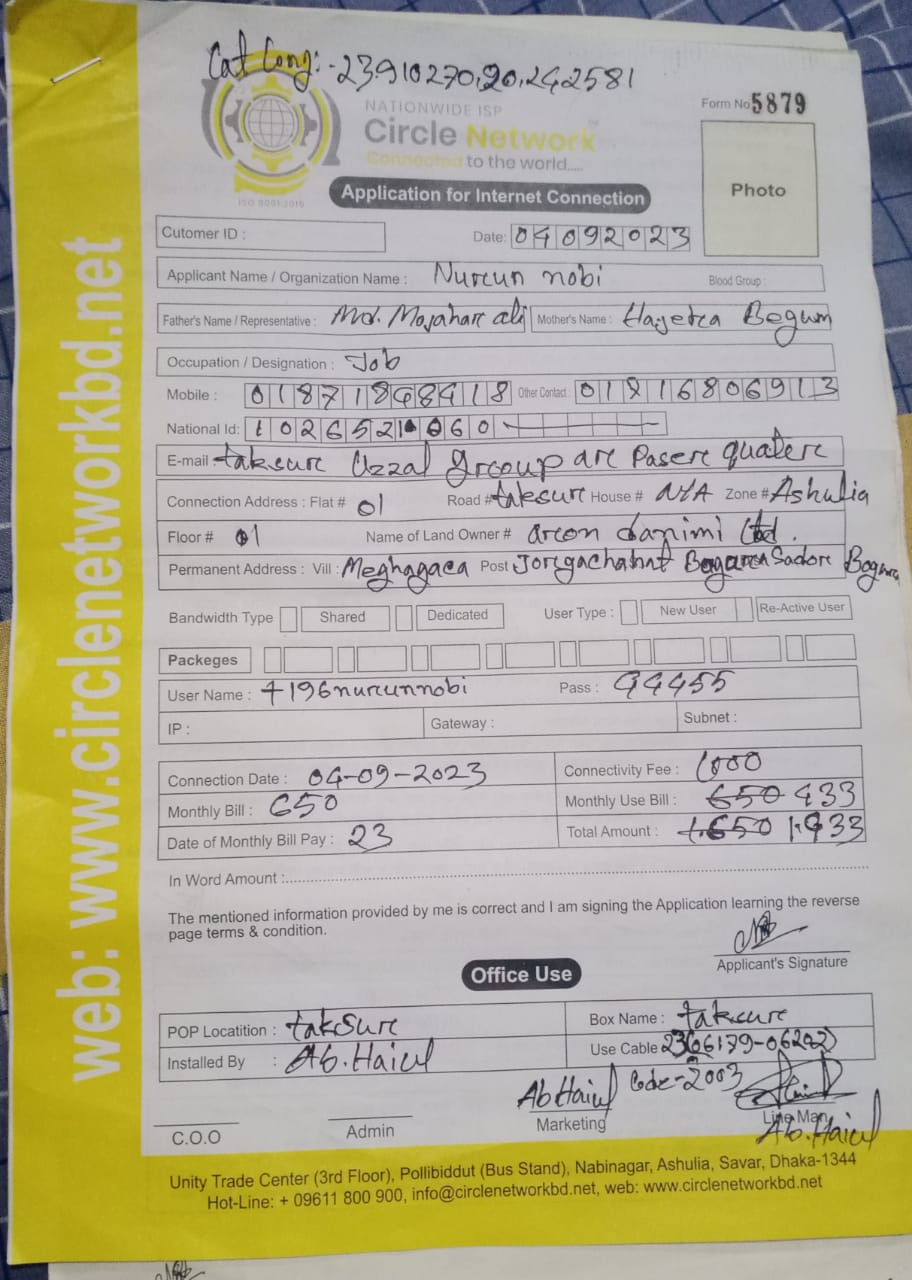 Cat Cong:-23910270,20,242581
NATIONWIDE ISP
Form No 5879
Circle Network
Connected to the world.....
ISO 9001:2015
Application for Internet Connection
Photo
Cutomer ID :
Date: 04092023
Applicant Name / Organization Name : Nurun nobi Blood Group :
Father's Name / Representative : Md. Mojahar ali Mother's Name : Hayetra Begum
Occupation / Designation : Job
Mobile : 01871848418 Other Contact : 01816806913
National Id: 1026521060
E-mail : taksure Uzzal group are Pasere quatere
Connection Address : Flat # 01 Road # taksure House # N/A Zone # Ashulia
Floor # 01 Name of Land Owner # arcon danimi Ltd.
Permanent Address : Vill : Meghagaca Post Jorgachahat Sadore Bogura
Bandwidth Type Shared Dedicated User Type : New User Re-Active User
Packeges
User Name : 7196nurunnobi Pass : 44455
IP : Gateway : Subnet :
Connection Date : 04-09-2023 Connectivity Fee : 1000
Monthly Bill : 650 Monthly Use Bill : 650 433
Date of Monthly Bill Pay : 23 Total Amount : 1.650 1.433
In Word Amount :
The mentioned information provided by me is correct and I am signing the Application learning the reverse
page terms & condition.
Applicant's Signature
Office Use
POP Locatition : takSure Box Name : taksure
Installed By : Ab.Haiul Use Cable
Ab Haiul Code-2003
C.O.O Admin Marketing Line Man
Ab.Haiul
Unity Trade Center (3rd Floor), Pollibiddut (Bus Stand), Nabinagar, Ashulia, Savar, Dhaka-1344
Hot-Line: + 09611 800 900, info@circlenetworkbd.net, web: www.circlenetworkbd.net
web: www.circlenetworkbd.net